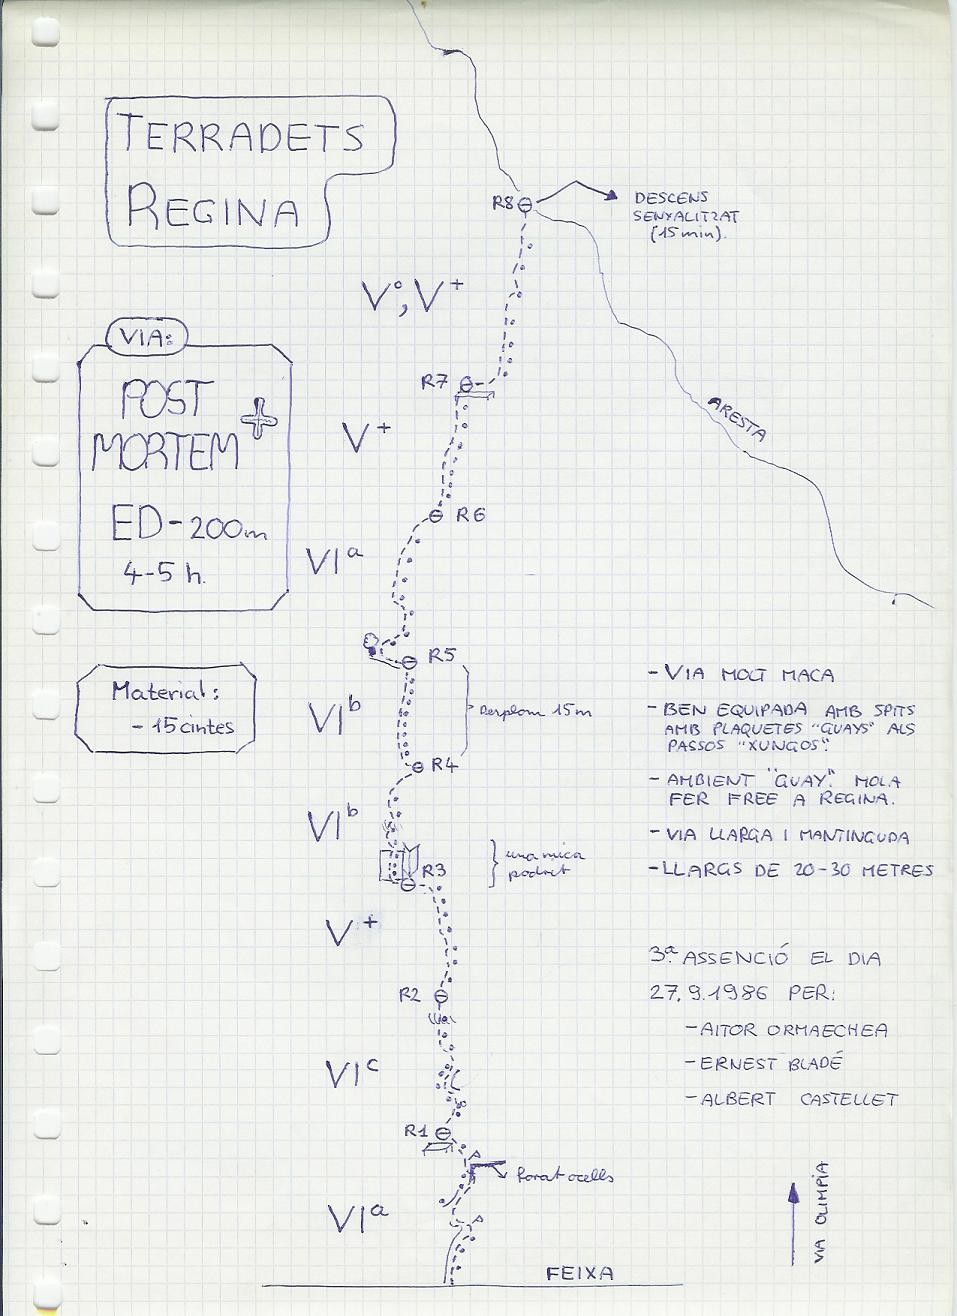 TERRADETS
REGINA
R8
DESCENS
SENYALITZAT
(15 min).
Vº, V+
VIA:
POST
MORTEM +
ED - 200m
4-5 h.
R7
ARESTA
V+
R6
VIa
R5
Material:
- 15 cintes
VIb
Desplom 15 m
R4
- VIA MOLT MACA
- BEN EQUIPADA AMB SPITS
AMB PLAQUETES "GUAYS" ALS
PASSOS "XUNGOS".
- AMBIENT "GUAY". MOLA
FER FREE A REGINA.
- VIA LLARGA I MANTINGUDA
- LLARGS DE 20-30 METRES
VIb
una mica
podrit
R3
V+
R2
3ª ASSENCIÓ EL DIA
27.9.1986 PER:
- AITOR ORMAECHEA
- ERNEST BLADÉ
- ALBERT CASTELLET
VIc
R1
A
forat ocells
VIa
A
VIA OLIMPIA
FEIXA